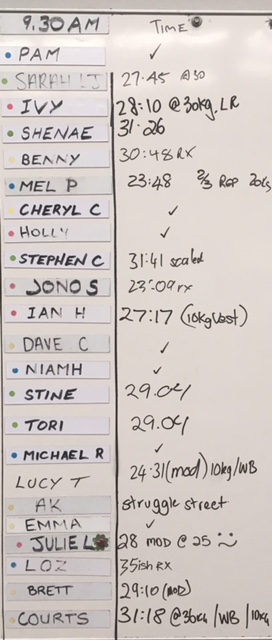 9.30AM TIME
PAM ✓
SARAH LJ 27:45 A30
IVY 28:10 @30kg.LR
SHENAE 31:26
BENNY 30:48 RX
MEL P 23:48 2/3 REP 20
CHERYL C ✓
HOLLY ✓
STEPHEN C 31:41 scaled
JONO S 23:09 rx
IAN H 27:17 (10kg Vest)
DAVE C ✓
NIAMH ✓
STINE 29.04
TORI 29.04
MICHAEL R ✓
LUCY T 24:31 (mod) 10kg/WB
AK struggle street
EMMA ✓
JULIE L 28 MOD @ 25
LOZ 35ish RX
BRETT 29:10 (MOD)
COURTS 31:18 @30kg /WB /10kg